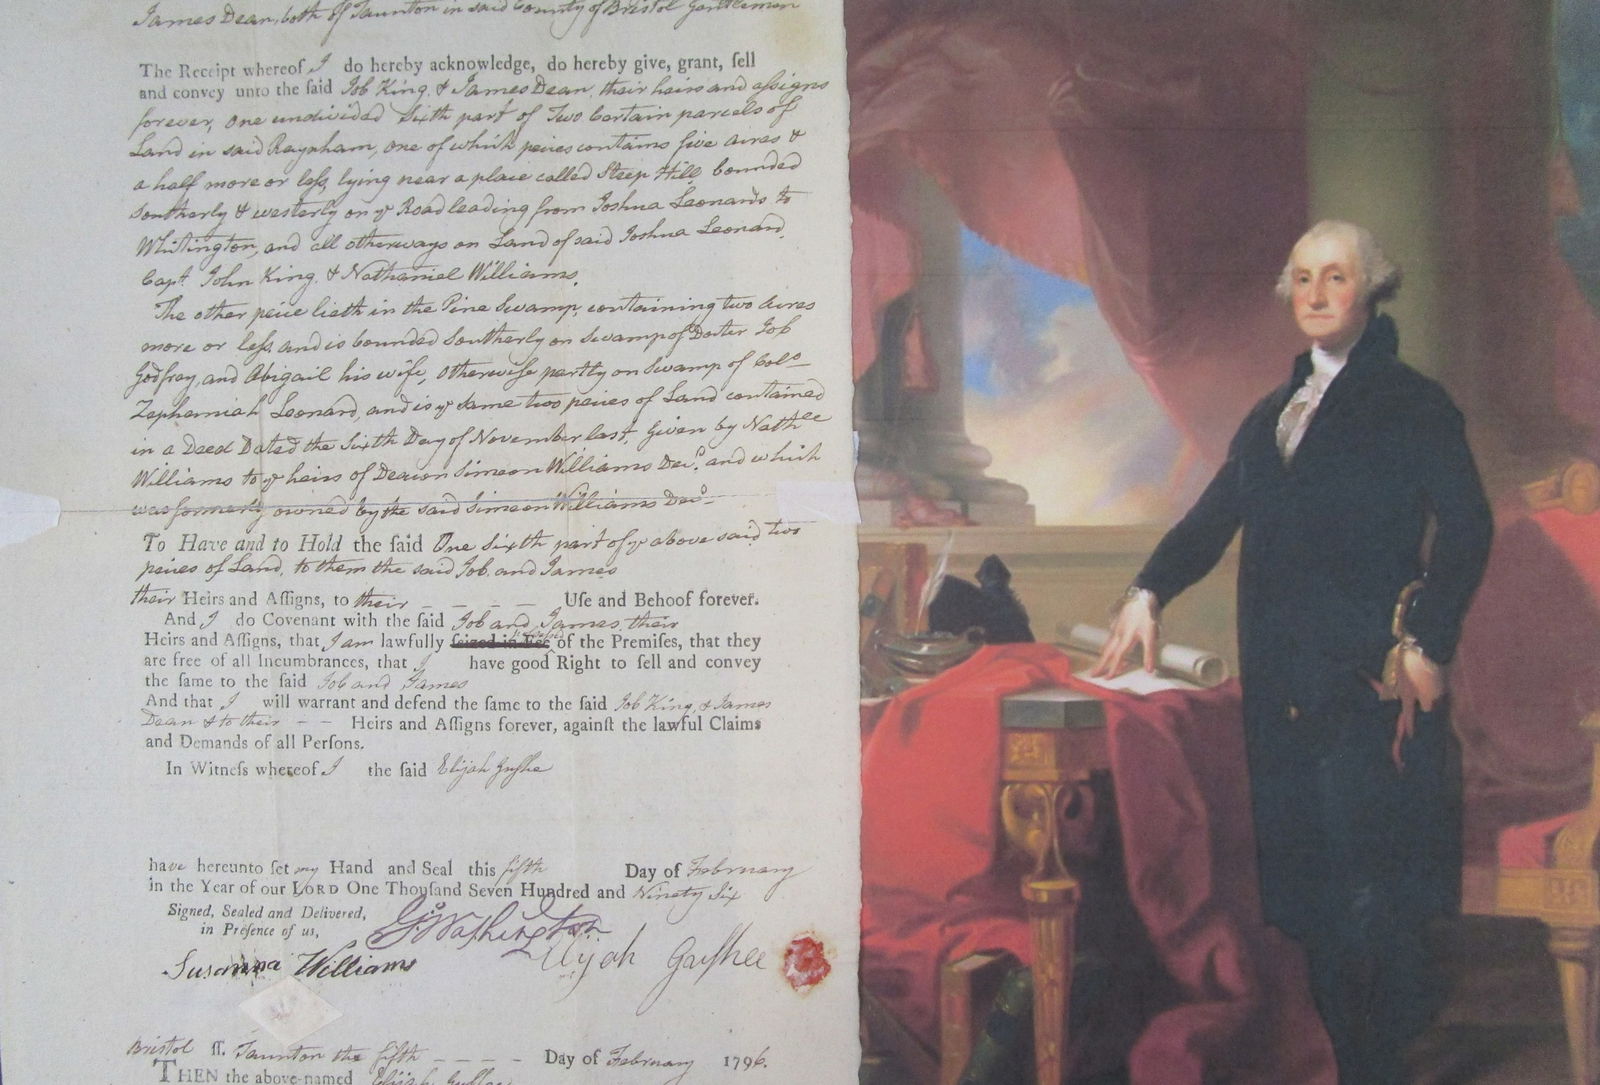 James Dean, both of Taunton in said County of Bristol Gentlemen
The Receipt whereof I do hereby acknowledge, do hereby give, grant, ſell
and convey unto the ſaid Job King, & James Dean, their heirs and aſsigns
forever, One undivided Sixth part of Two Certain parcels of
Land in said Raynham, one of which peices contains five acres &
a half more or leſs, lying near a place called Steep Hill, bounded
Southerly & westerly on ye Road leading from Joshua Leonards to
Whitington, and all otherways on Land of said Joshua Leonard,
Capt. John King, & Nathaniel Williams,
The other peice lieth in the Pine Swamp, containing two acres
more or leſs, and is bounded Southerly on Swamp of Docter Job
Godfrey, and Abigail his wife, otherwiſe partly on Swamp of Colo
Zephaniah Leonard, and is ye same two peices of Land contained
in a Deed Dated the Sixth Day of November last, Given by Nathll
Williams to ye heirs of Deacon Simeon Williams Decd. and which
was formerly owned by the said Simeon Williams Decd
To Have and to Hold the ſaid One Sixth part of ye above said two
peices of Land, to them the said Job and James
their Heirs and Aſſigns, to their – – – – Uſe and Behoof forever.
And I do Covenant with the ſaid Job and James, their
Heirs and Aſſigns, that I am lawfully ſeized in Fee of the Premiſes, that they
are free of all Incumbrances, that I have good Right to ſell and convey
the ſame to the ſaid Job and James
And that I will warrant and defend the ſame to the ſaid Job King, & James
Dean & to their – – Heirs and Aſſigns forever, againſt the lawful Claims
and Demands of all Perſons.
In Witneſs whereof I the ſaid Elijah Guſhee
have hereunto ſet my Hand and Seal this fifth Day of February
in the Year of our LORD One Thouſand Seven Hundred and Ninety Six
Signed, Sealed and Delivered,
in Preſence of us,
G:Washington
Susanna Williams
Elijah Guſhee
Bristol ſſ. Taunton the fifth – – – – Day of February 1796.
THEN the above-named Elijah Guſhee